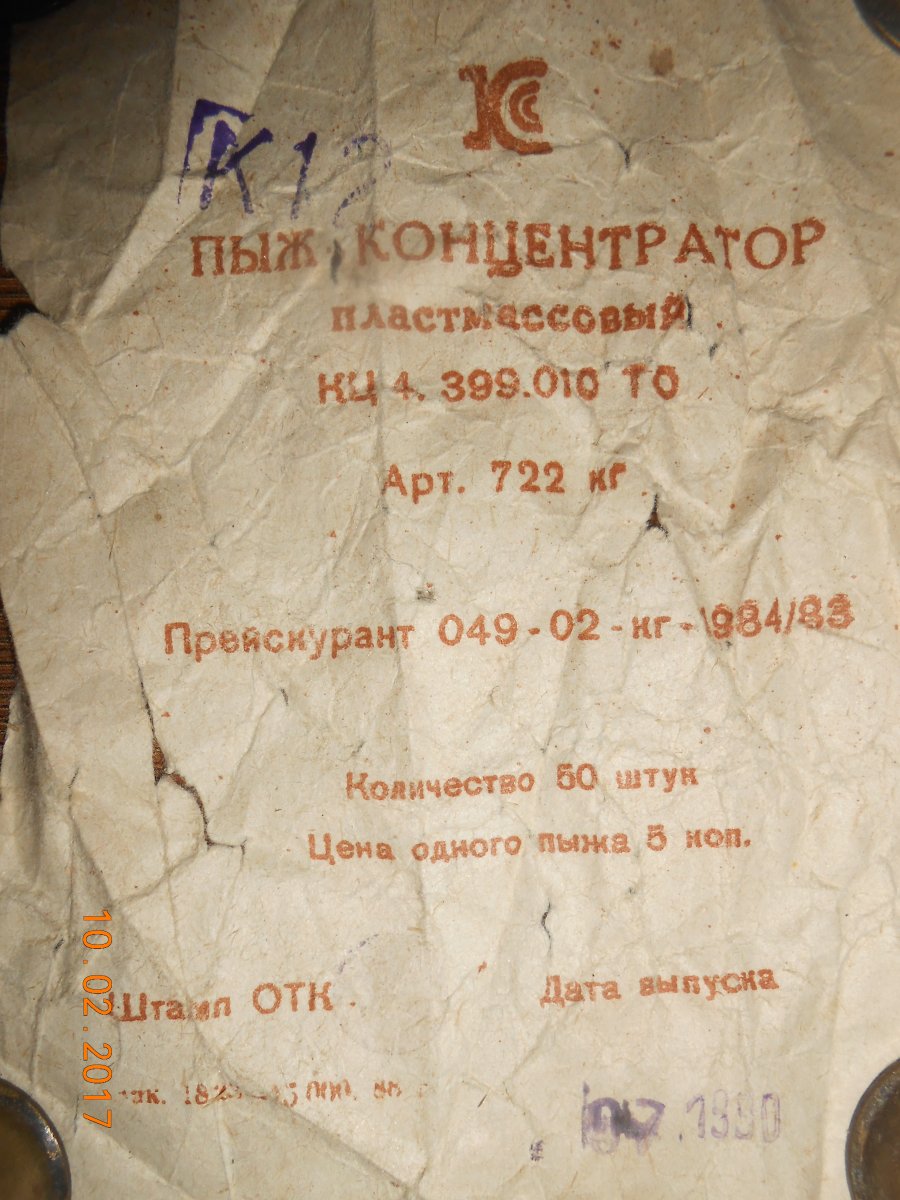 К12
ПЫЖ КОНЦЕНТРАТОР
пластмассовый
КЦ 4. 399.010 ТО
Арт. 722 кг
Прейскурант 049-02-кг-1984/83
Количество 50 штук
Цена одного пыжа 5 коп.
Штамп ОТК
Дата выпуска
10.02.2017
.1990